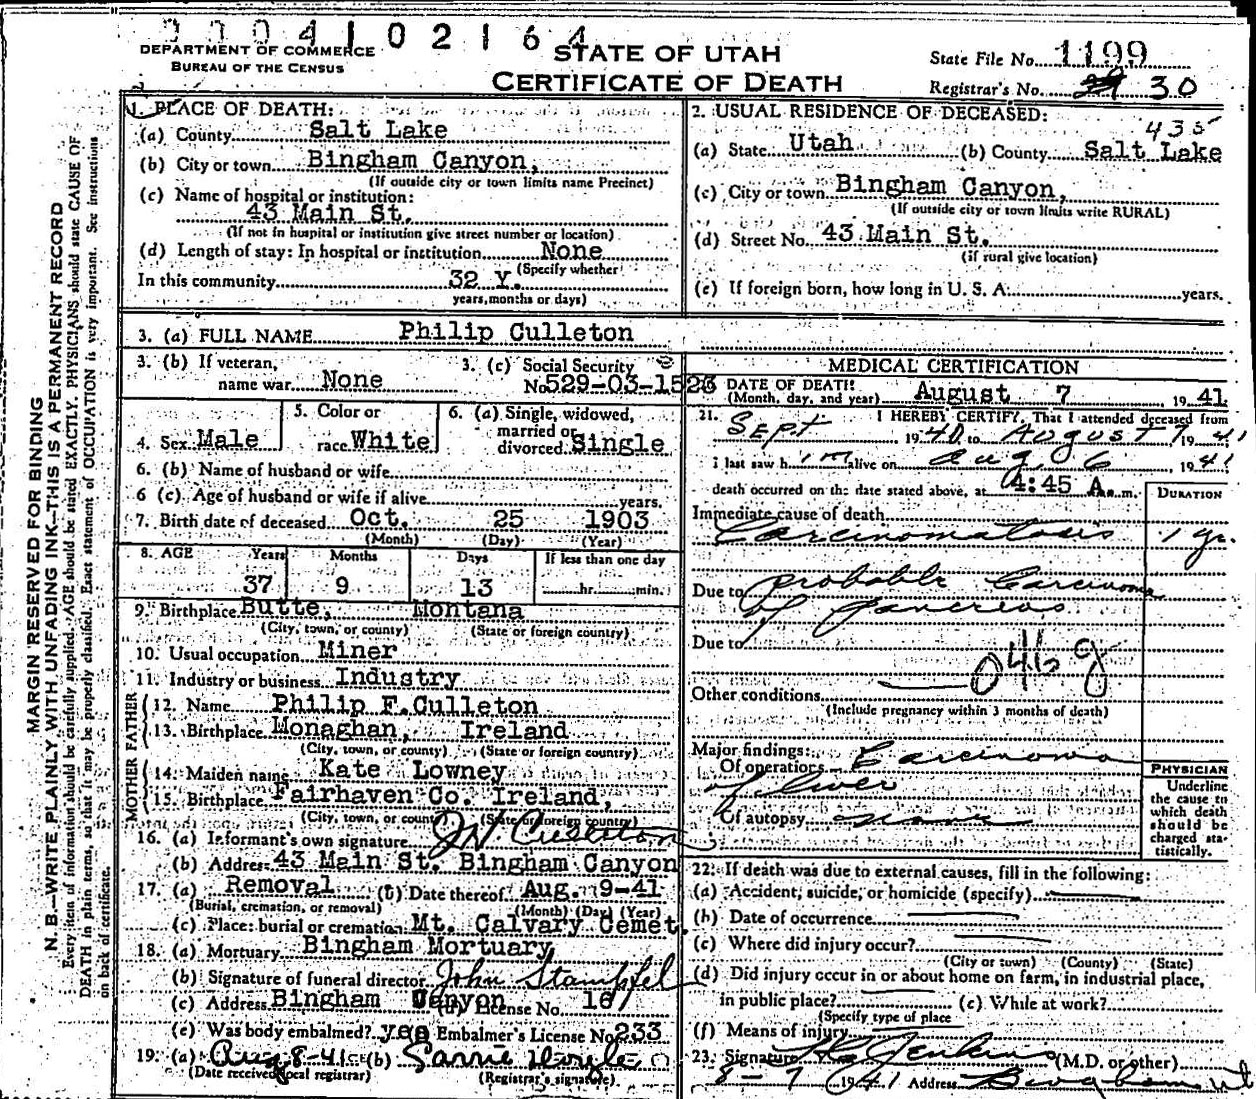 0004102164
DEPARTMENT OF COMMERCE
BUREAU OF THE CENSUS
STATE OF UTAH
CERTIFICATE OF DEATH
State File No. 1199
Registrar's No. 30
1. PLACE OF DEATH:
(a) County Salt Lake
(b) City or town Bingham Canyon,
(If outside city or town limits name Precinct)
(c) Name of hospital or institution:
43 Main St.
(If not in hospital or institution give street number or location)
(d) Length of stay: In hospital or institution None
(Specify whether
In this community 32 Y.
years, months or days)
2. USUAL RESIDENCE OF DECEASED:
435
(a) State Utah (b) County Salt Lake
(c) City or town Bingham Canyon,
(If outside city or town limits write RURAL)
(d) Street No. 43 Main St.
(if rural give location)
(e) If foreign born, how long in U. S. A. years.
3. (a) FULL NAME Philip Culleton
3. (b) If veteran, name war None
3. (c) Social Security No. 529-03-1523
4. Sex Male
5. Color or race White
6. (a) Single, widowed, married or divorced Single
6. (b) Name of husband or wife
6 (c). Age of husband or wife if alive years.
7. Birth date of deceased Oct. 25 1903
(Month) (Day) (Year)
8. AGE Years Months Days If less than one day
37 9 13 hr. min.
9. Birthplace Butte, Montana
(City, town, or county) (State or foreign country)
10. Usual occupation Miner
11. Industry or business Industry
FATHER
12. Name Philip F. Culleton
13. Birthplace Monaghan, Ireland
(City, town, or county) (State or foreign country)
MOTHER
14. Maiden name Kate Lowney
15. Birthplace Fairhaven Co. Ireland,
(City, town, or county) (State or foreign country)
16. (a) Informant's own signature J W Culleton
(b) Address 43 Main St. Bingham Canyon
17. (a) Removal (b) Date thereof Aug. 9-41
(Burial, cremation, or removal) (Month) (Day) (Year)
(c) Place: burial or cremation Mt. Calvary Cemet.
18. (a) Mortuary Bingham Mortuary
(b) Signature of funeral director John Stampfel
(c) Address Bingham Canyon (d) License No. 167
(e) Was body embalmed? yes Embalmer's License No. 233
19. (a) Aug 8-41 (b)
(Date received local registrar) (Registrar's signature)
MEDICAL CERTIFICATION
DATE OF DEATH: August 7, 1941
(Month, day, and year)
21. I HEREBY CERTIFY, That I attended deceased from
Sept, 1940 to August 7 1941
I last saw him alive on Aug 6, 1941
death occurred on the date stated above, at 4:45 A. m.
DURATION
Immediate cause of death
Carcinomatosis 1 yr.
Due to probable Carcinoma
of Pancreas
Due to
046 g
Other conditions
(Include pregnancy within 3 months of death)
Major findings:
Of operations Carcinoma
of liver
Of autopsy none
PHYSICIAN
Underline
the cause to
which death
should be
charged sta-
tistically.
22. If death was due to external causes, fill in the following:
(a) Accident, suicide, or homicide (specify)
(b) Date of occurrence
(c) Where did injury occur?
(City or town) (County) (State)
(d) Did injury occur in or about home on farm, in industrial place,
in public place? (e) While at work?
(Specify type of place
(f) Means of injury
23. Signature Jenkins (M.D. or other)
8-7 1941 Address Bingham Ut
MARGIN RESERVED FOR BINDING
N. B.—WRITE PLAINLY WITH UNFADING INK—THIS IS A PERMANENT RECORD
Every item of information should be carefully supplied. AGE should be stated EXACTLY. PHYSICIANS should state CAUSE OF
DEATH in plain terms, so that it may be properly classified. Exact statement of OCCUPATION is very important. See instructions
on back of certificate.